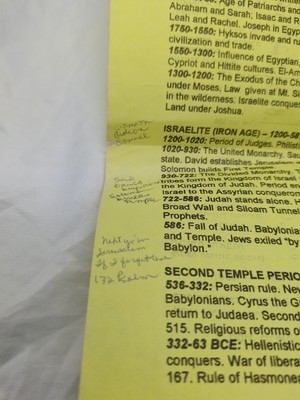 Age of Patriarchs and
Abraham and Sarah; Isaac and R
Leah and Rachel. Joseph in Egyp
1750-1550: Hyksos invade and
civilization and trade.
1550-1300: Influence of Egyptian,
Cypriot and Hittite cultures. El-Am
1300-1200: The Exodus of the Ch
under Moses, Law given at Mt. Si
in the wilderness. Israelite conques
Land under Joshua.
ISRAELITE (IRON AGE) – 1200-58
1200-1020: Period of Judges. Philisti
1020-930: The United Monarchy. Sau
state. David establishes Jerusalem
Solomon builds First Temple.
930-722: The Divided Monarchy.
tribes form the Kingdom of Israel
the Kingdom of Judah. Period en
Israel to the Assyrian conqueror
722-586: Judah stands alone. H
Broad Wall and Siloam Tunnel
Prophets.
586: Fall of Judah. Babylonia
and Temple. Jews exiled "by
Babylon."
Jerusalem
If I forget thee
137 Psalm
SECOND TEMPLE PERIO
536-332: Persian rule. New
Babylonians. Cyrus the G
return to Judaea. Second
515. Religious reforms o
332-63 BCE: Hellenistic
conquers. War of liberat
167. Rule of Hasmonea